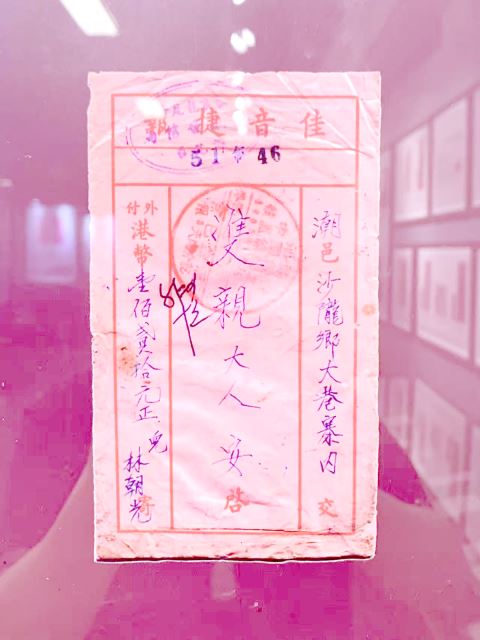 佳音捷報
51 46
潮邑沙隴鄉大巷寨内 交
雙親大人安啓
外付港幣壹佰貳拾元正 兒 林朝光 寄